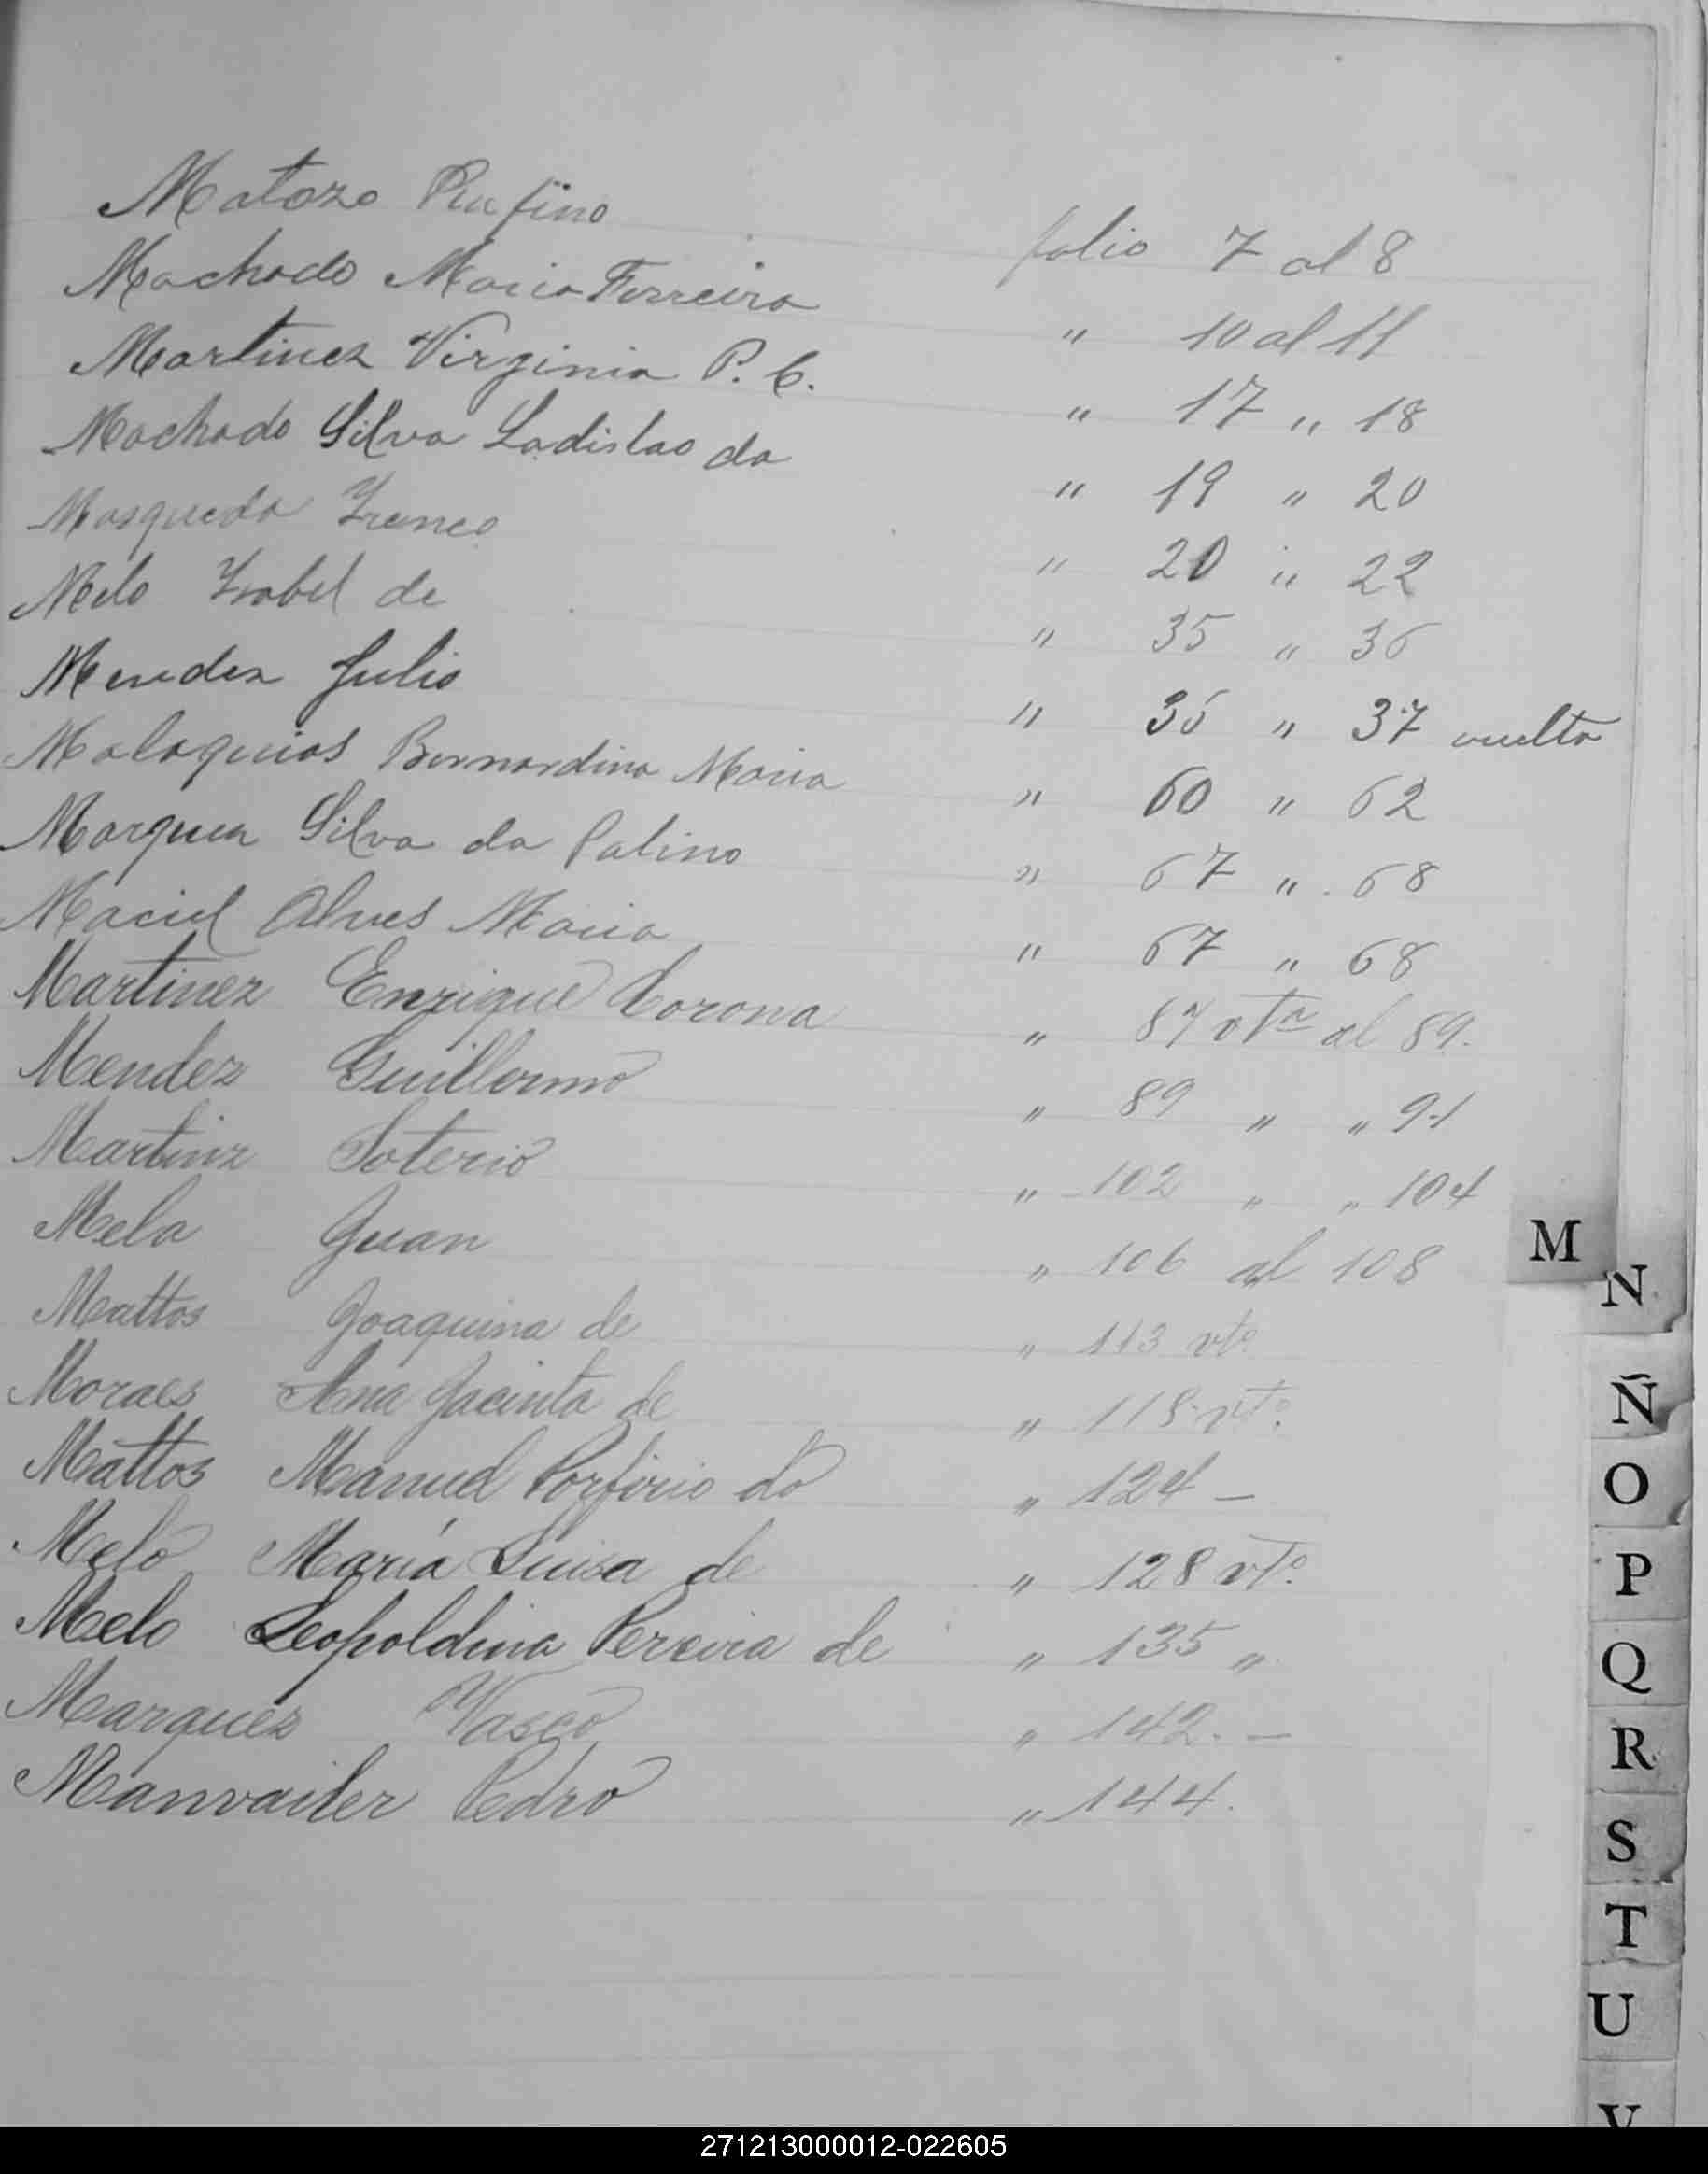 Matozo Rufino folio 7 al 8
Machado Maria Ferreira " 10 al 11
Martinez Virginia P. C. " 17 " 18
Machado Silva Ladislao da " 19 " 20
Mosqueda Ireneo " 20 " 22
Melo Isabel de " 35 " 36
Mendez Julio " 35 " 37 vuelto
Malaquias Bernardina Maria " 60 " 62
Marquez Silva da Palino " 67 " 68
Maciel Alves Maria " 67 " 68
Martinez Enrique Corona " 87 vta al 89.
Mendez Guillermo " 89 " " 91
Martinz Soterio " 102 " " 104
Mela Juan " 106 al 108
Mattos Joaquina de " 113 vto
Moraes Ana Jacinta de " 118 vto.
Mattos Manuel Porfirio do " 124 —
Melo María Luisa de " 128 vto.
Melo Leopoldina Pereira de " 135 "
Marquez Vasco " 142. —
Manvailer Pedro " 144.
M
N
Ñ
O
P
Q
R
S
T
U
V
271213000012-022605